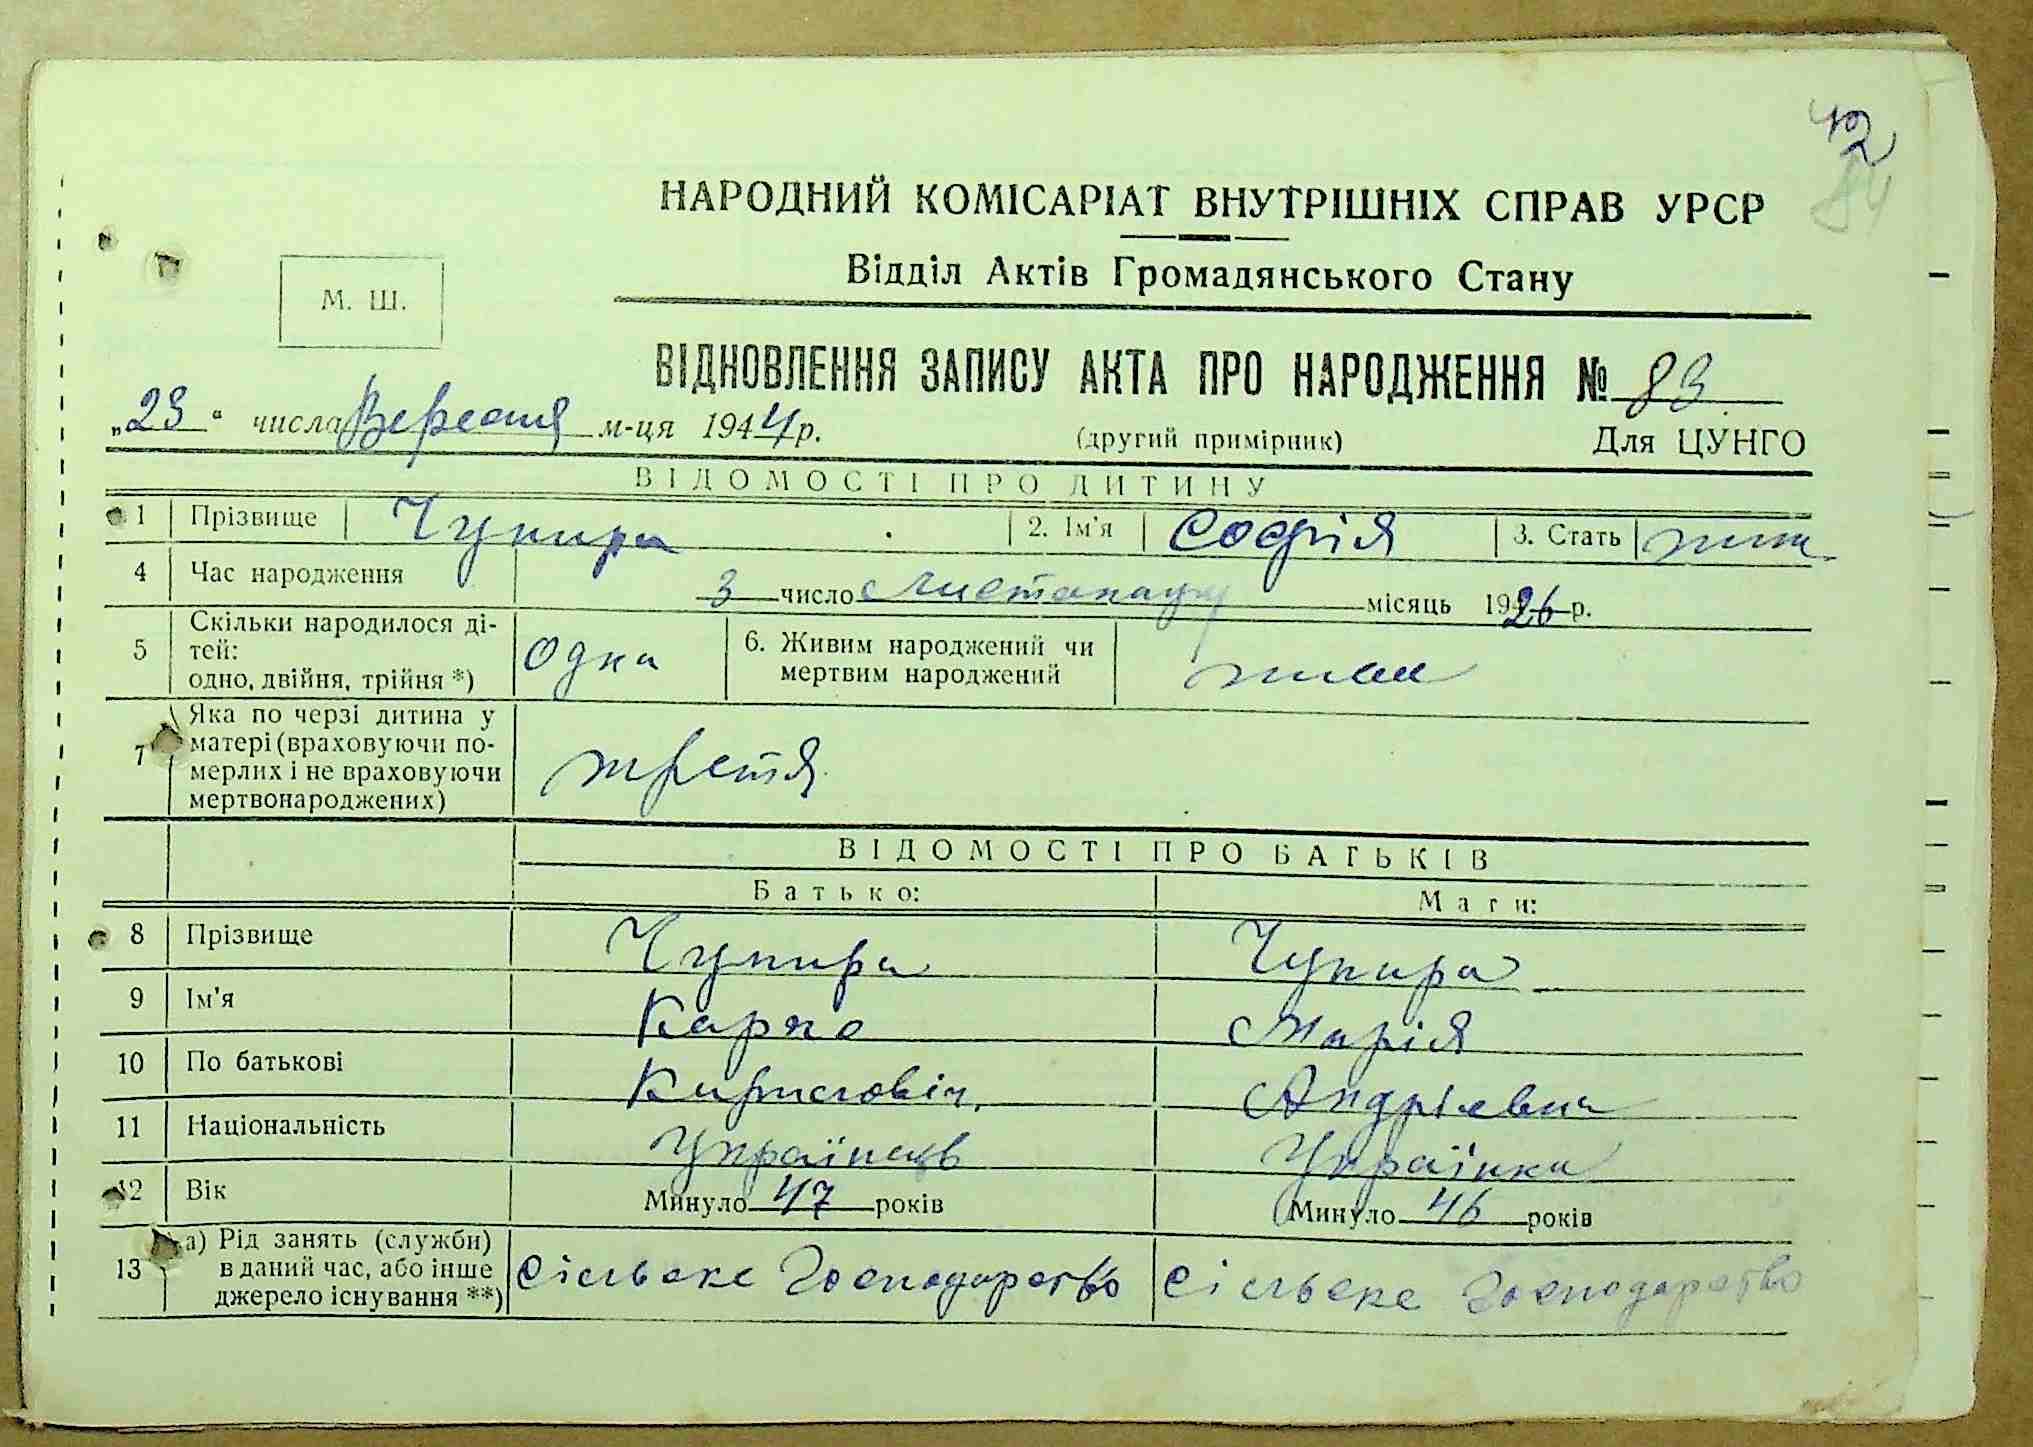 42
НАРОДНИЙ КОМІСАРІАТ ВНУТРІШНІХ СПРАВ УРСР
Відділ Актів Громадянського Стану
М. Ш.
ВІДНОВЛЕННЯ ЗАПИСУ АКТА ПРО НАРОДЖЕННЯ № 83
„23" числа Вересня м-ця 1944 р. (другий примірник) Для ЦУНГО
ВІДОМОСТІ ПРО ДИТИНУ
1 Прізвище Чупира 2. Ім'я Софія 3. Стать жін
4 Час народження 3 число Листопаду місяць 1926 р.
5 Скільки народилося ді-
тей:
одно, двійня, трійня *) Одна 6. Живим народжений чи
мертвим народжений
7 Яка по черзі дитина у
матері (враховуючи по-
мерлих і не враховуючи
мертвонароджених) третя
ВІДОМОСТІ ПРО БАТЬКІВ
Батько: Мати:
8 Прізвище Чупира Чупира
9 Ім'я Карпо Марія
10 По батькові Андріевна
11 Національність Українець Українка
12 Вік Минуло 47 років Минуло 46 років
13 а) Рід занять (служби)
в даний час, або інше
джерело існування **) Сільске Господарство Сільске Господарство